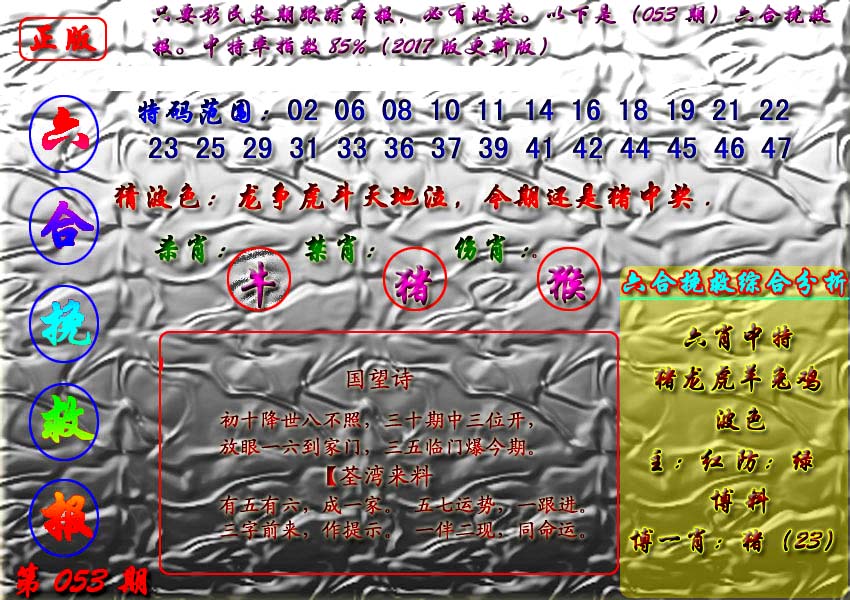 正版
只要彩民长期跟踪本报，必有收获。以下是（053期）六合挽救
报。中特率指数85%（2017版更新版）
六合挽救报
第053期
特码范围：02 06 08 10 11 14 16 18 19 21 22
23 25 29 31 33 36 37 39 41 42 44 45 46 47
猜波色：龙争虎斗天地泣，今期还是猪中奖．
杀肖：牛 禁肖：猪 伤肖：。猴
国望诗
初十降世八不照，三十期中三位开，
放眼一六到家门，三五临门爆今期。
【荃湾来料
有五有六，成一家。 五七运势，一跟进。
三字前来，作提示。 一伴二现，同命运。
六合挽救综合分析
六肖中特
猪龙虎羊兔鸡
波色
主：红防：绿
博料
博一肖：猪（23）